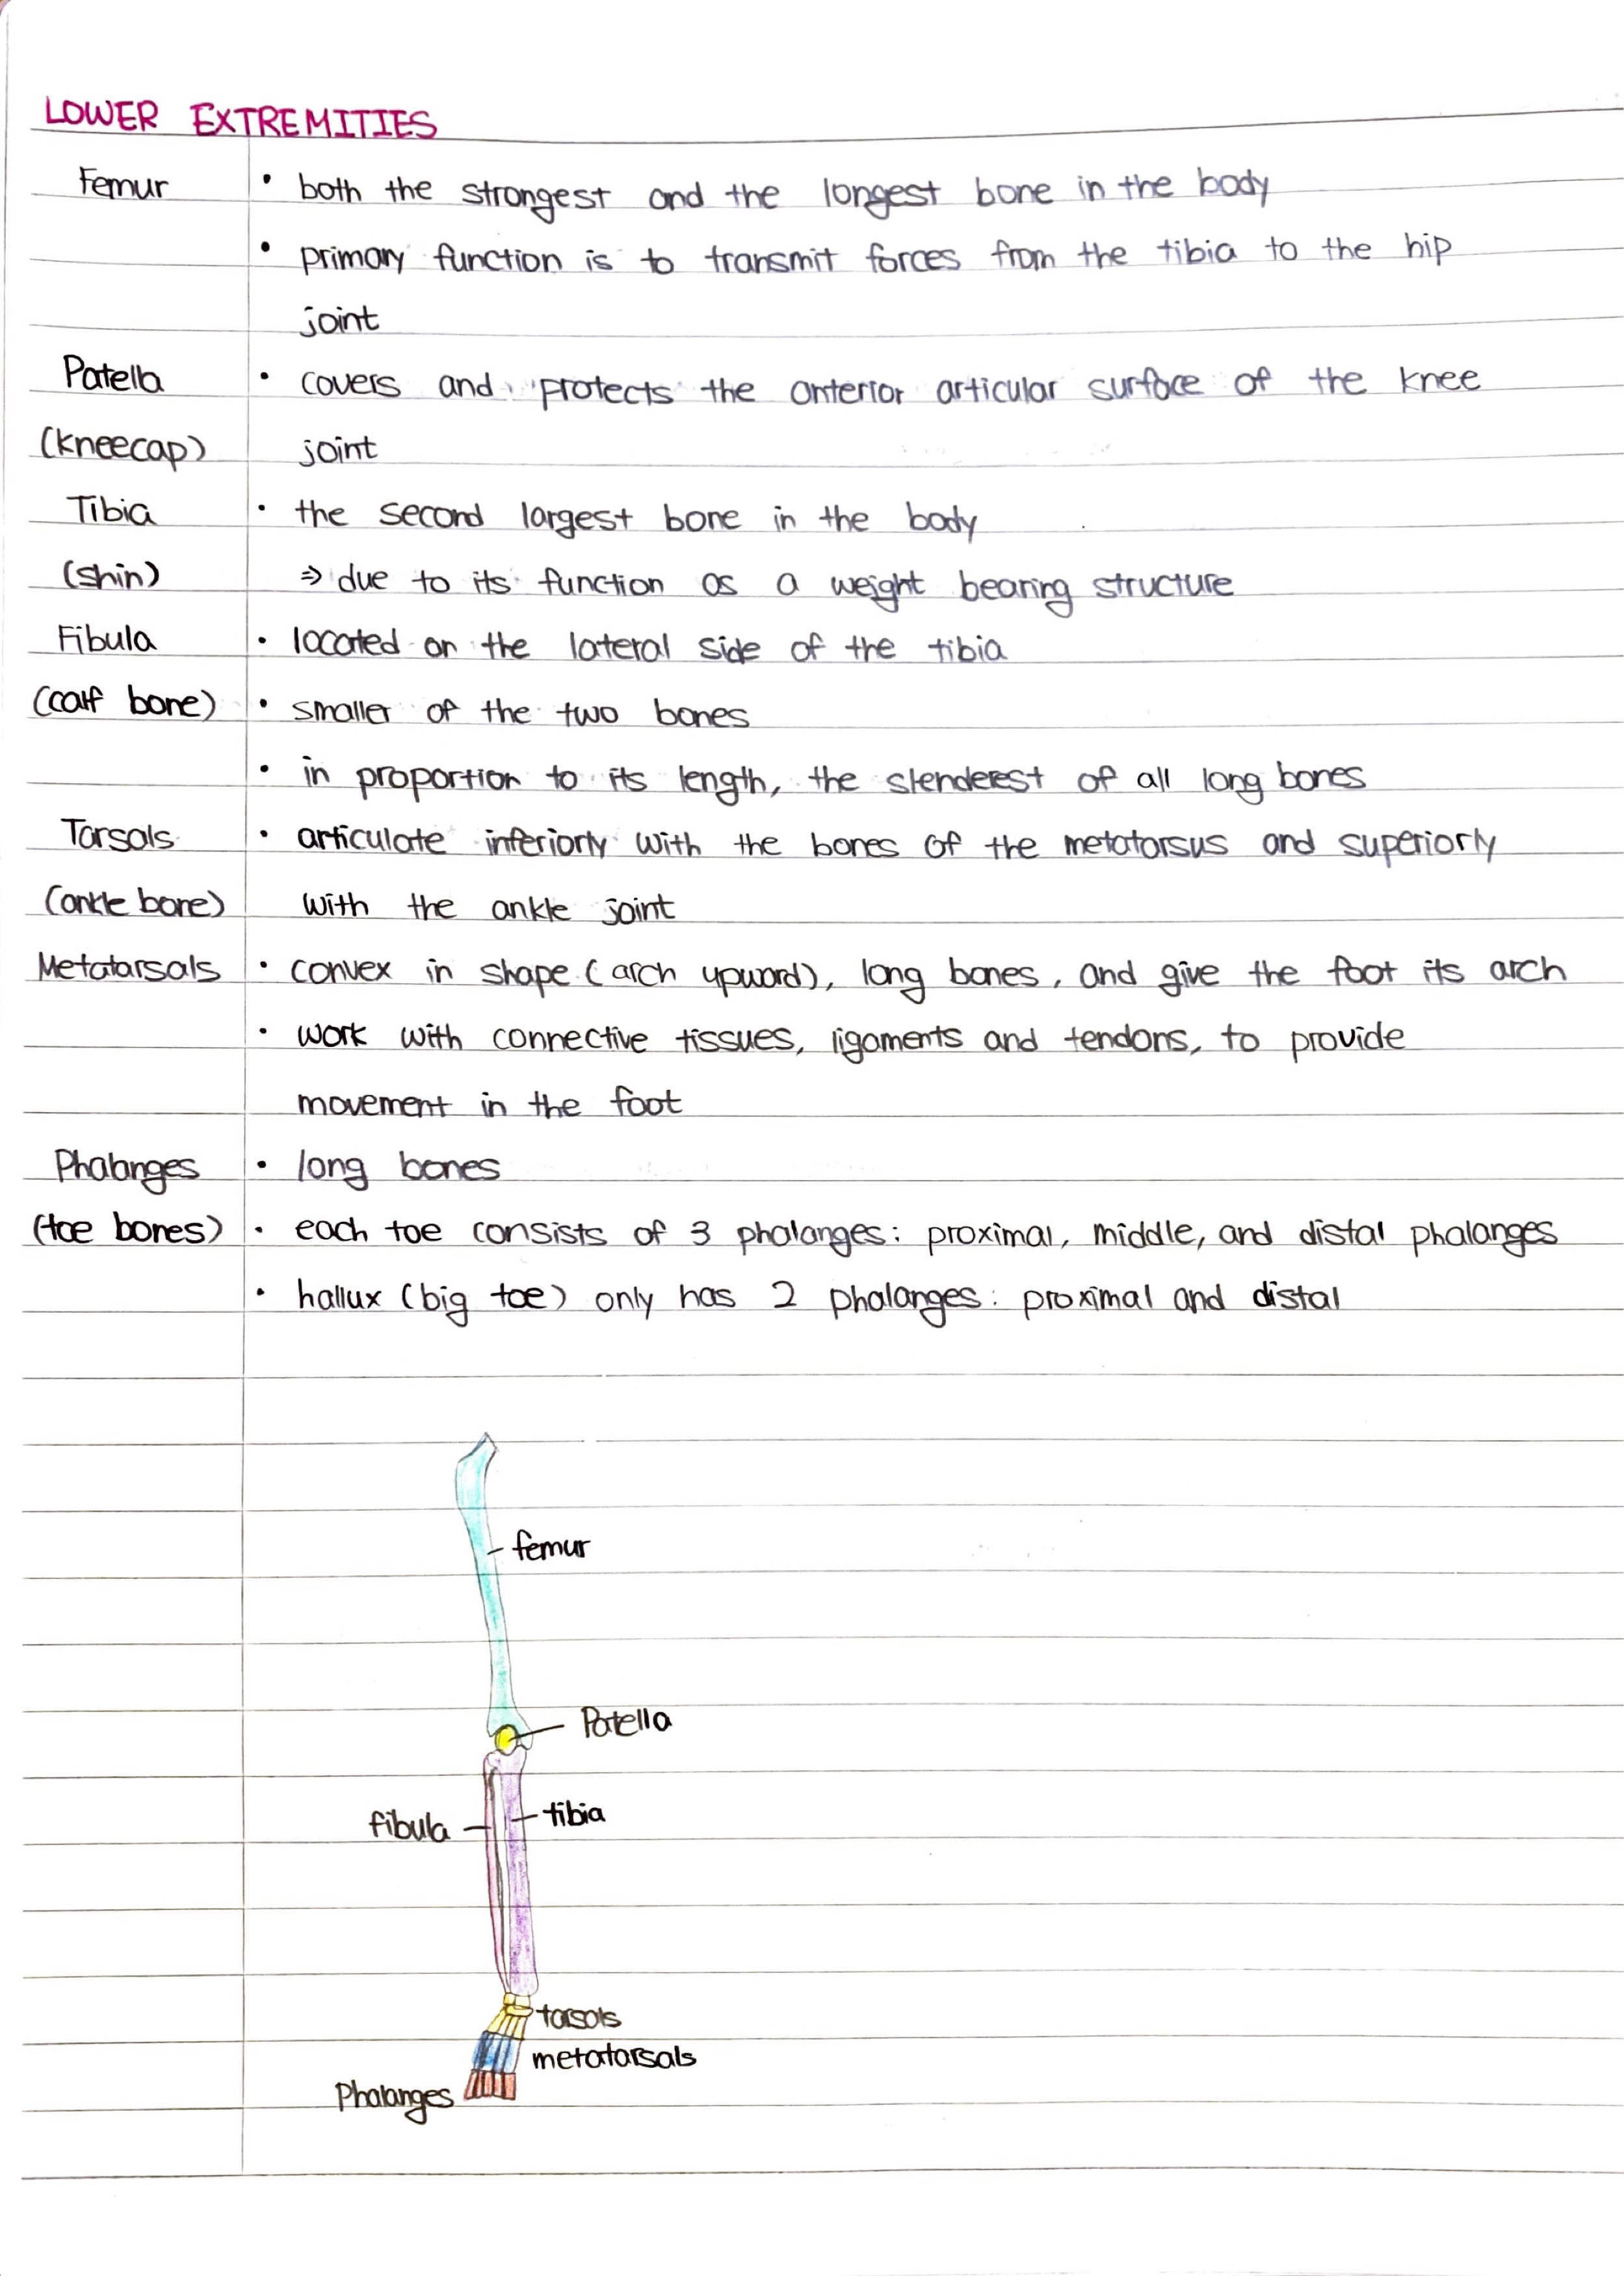 LOWER EXTREMITIES
Femur • both the strongest and the longest bone in the body
• primary function is to transmit forces from the tibia to the hip
joint
Patella • covers and protects the anterior articular surface of the knee
(kneecap) joint
Tibia • the second largest bone in the body
(shin) ⇒ due to its function as a weight bearing structure
Fibula • located on the lateral side of the tibia
(calf bone) • smaller of the two bones
• in proportion to its length, the slenderest of all long bones
Tarsals • articulate inferiorly with the bones of the metatarsus and superiorly
(ankle bone) with the ankle joint
Metatarsals • convex in shape (arch upward), long bones, and give the foot its arch
• work with connective tissues, ligaments and tendons, to provide
movement in the foot
Phalanges • long bones
(toe bones) • each toe consists of 3 phalanges: proximal, middle, and distal phalanges
• hallux (big toe) only has 2 phalanges: proximal and distal
femur
Patella
tibia
fibula
tarsals
metatarsals
Phalanges